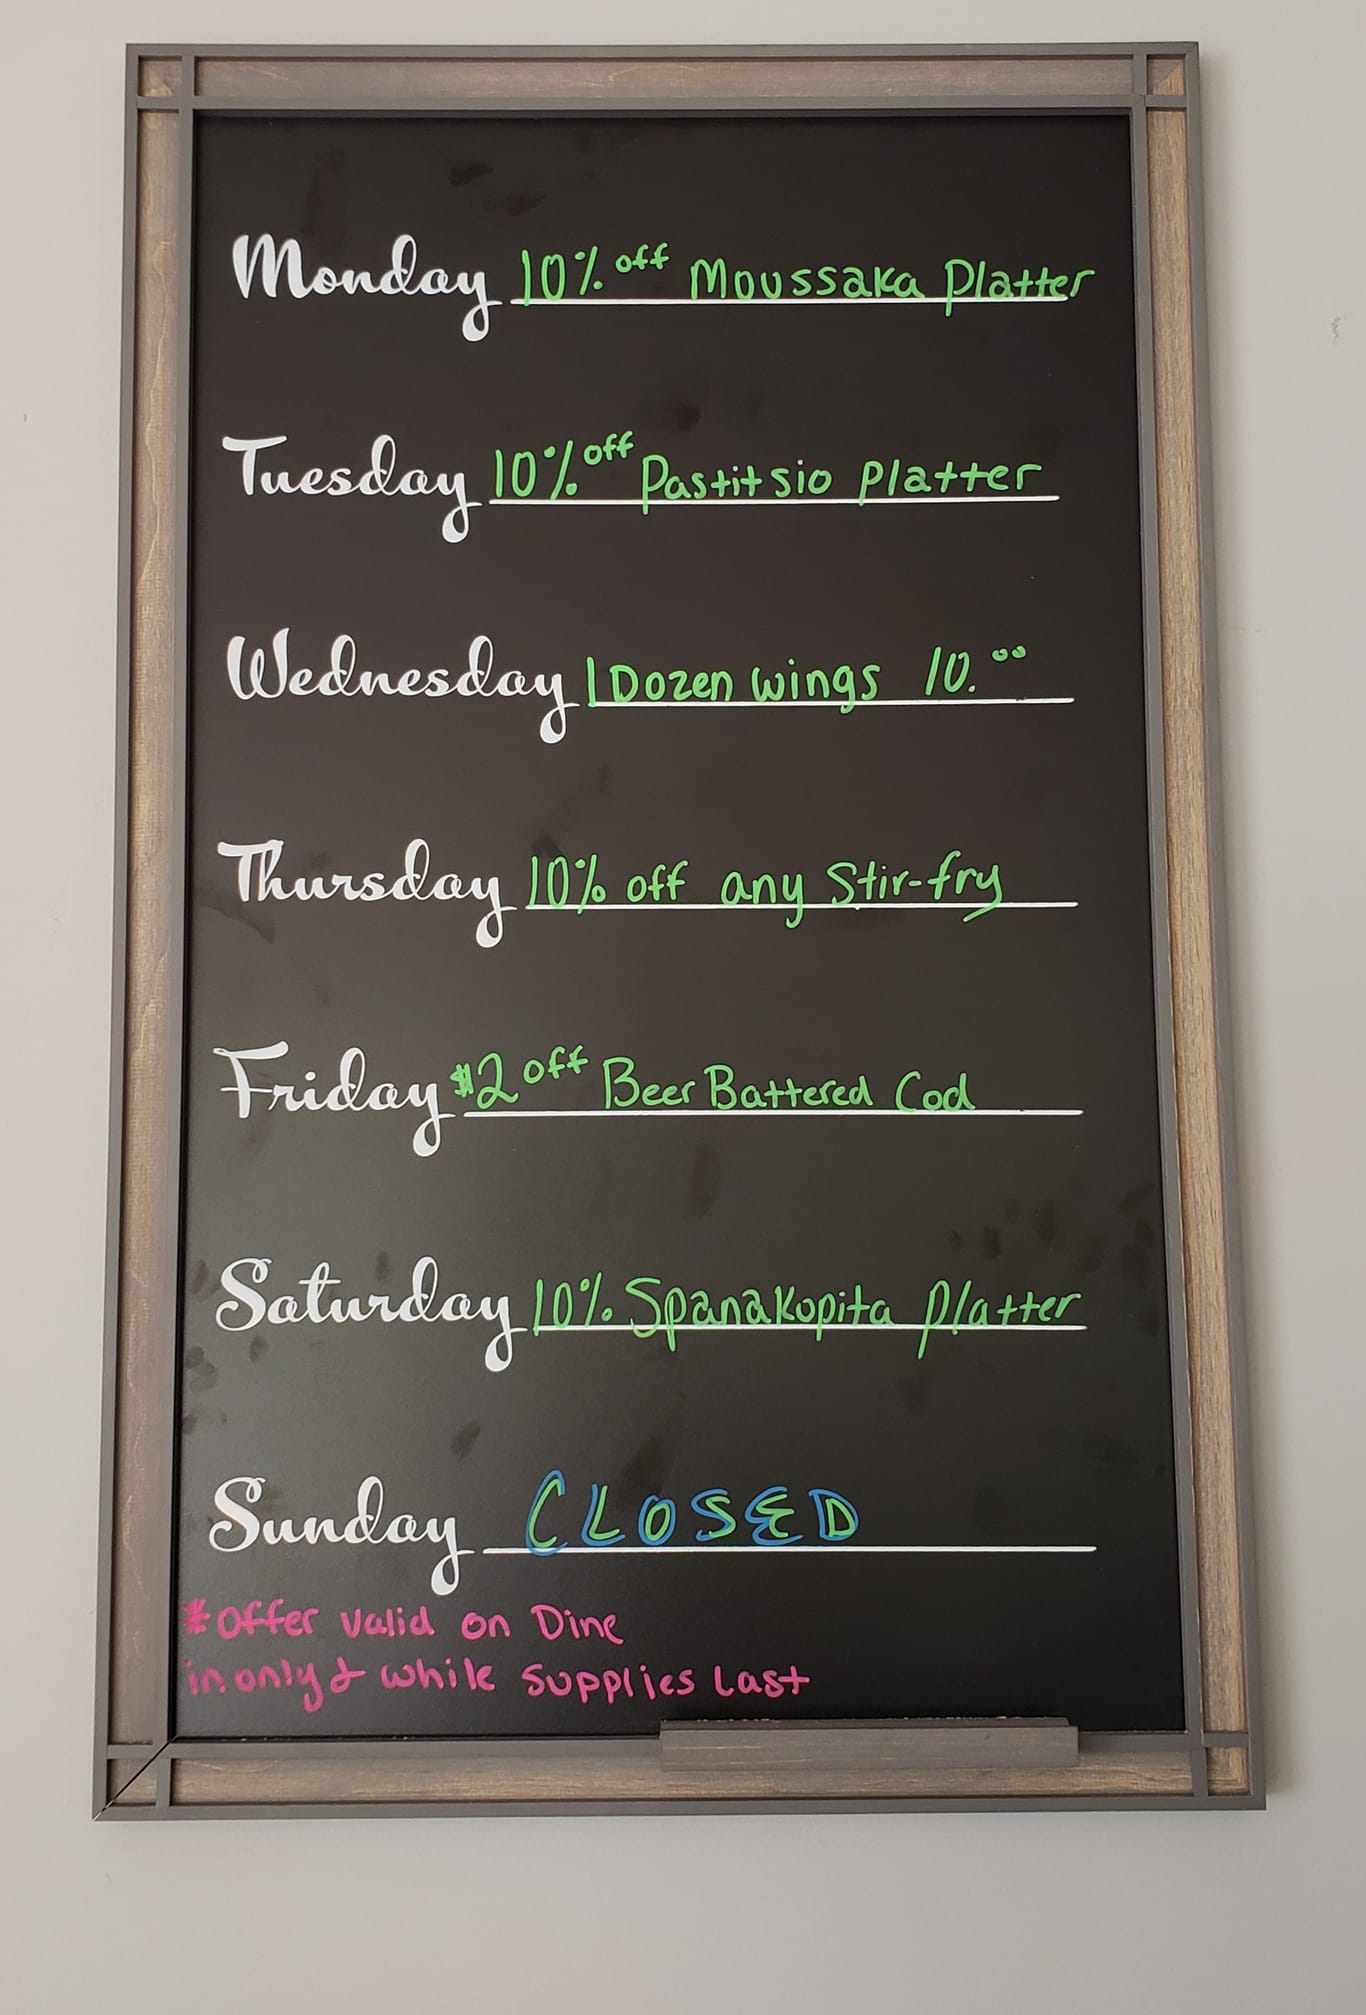 Monday 10% off Moussaka Platter
Tuesday 10% off Pastitsio Platter
Wednesday 1 Dozen wings 10.00
Thursday 10% off any Stir-fry
Friday $2 off Beer Battered Cod
Saturday 10% Spanakopita Platter
Sunday CLOSED
*Offer valid on Dine
in only & while supplies Last